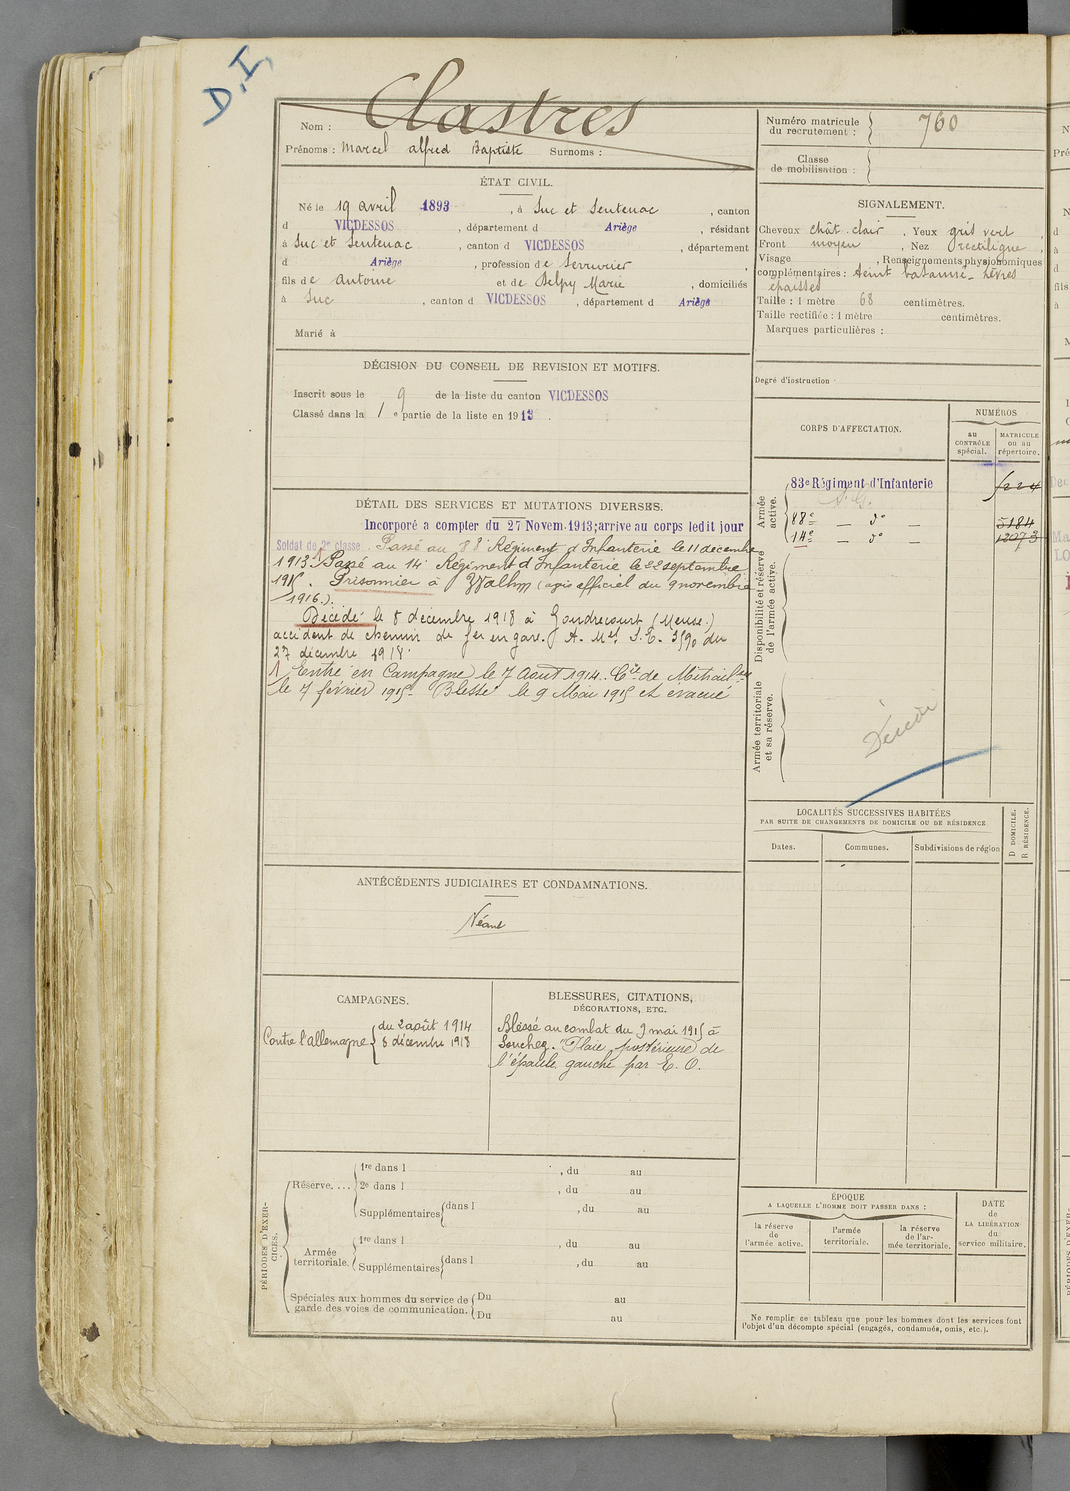 D.I.
Clastres
Nom :
Prénoms : Marcel alfred Baptiste Surnoms :
Numéro matricule
du recrutement : 760
Classe
de mobilisation :
ÉTAT CIVIL.
Né le 19 avril 1893, à Suc et Sentenac, canton
d VICDESSOS, département d Ariège, résidant
à Suc et Sentenac, canton d VICDESSOS, département
d Ariège, profession de Serrurier,
fils de Antoine et de Delpy Marie, domiciliés
à Suc, canton d VICDESSOS, département d Ariège
Marié à
SIGNALEMENT.
Cheveux chât. clair, Yeux gris vert,
Front moyen, Nez rectiligne,
Visage , Renseignements physionomiques
complémentaires : teint basanné - lèvres
épaisses
Taille : 1 mètre 68 centimètres.
Taille rectifiée : 1 mètre centimètres.
Marques particulières :
Degré d'instruction
DÉCISION DU CONSEIL DE REVISION ET MOTIFS.
Inscrit sous le 9 de la liste du canton VICDESSOS
Classé dans la 1e partie de la liste en 1913.
CORPS D'AFFECTATION.
NUMÉROS
au
CONTRÔLE
spécial.
MATRICULE
ou au
répertoire.
Armée
active.
83e Régiment d'Infanterie
88e — do — 5184
14e — do — 12073
Disponibilité et réserve
de l'armée active.
Armée territoriale
et sa réserve.
DÉTAIL DES SERVICES ET MUTATIONS DIVERSES.
Incorporé a compter du 27 Novem. 1913; arrive au corps ledit jour
Soldat de 2e classe. Passé au 88e Régiment d'Infanterie le 11 décembre
1913. 1 Passé au 14e Régiment d'Infanterie le 22 septembre
1915. Prisonnier à (avis officiel du 9 novembre
1916.).
Décédé le 8 décembre 1918 à Gondrecourt (Meuse.)
accident de chemin de fer en gare. A. Mel S.E. 3590 du
27 décembre 1918.
1 Entré en Campagne le 7 Août 1914. Cie de Mitrail
le 7 février 1915. Blessé le 9 Mai 1915 et évacué
LOCALITÉS SUCCESSIVES HABITÉES
PAR SUITE DE CHANGEMENTS DE DOMICILE OU DE RÉSIDENCE
Dates.
Communes.
Subdivisions de région
D DOMICILE.
R RÉSIDENCE.
ANTÉCÉDENTS JUDICIAIRES ET CONDAMNATIONS.
Néant
CAMPAGNES.
Contre l'allemagne { du 2 août 1914
8 décembre 1918
BLESSURES, CITATIONS,
DÉCORATIONS, ETC.
Blessé au combat du 9 mai 1915 à
Souchez. "Plaie postérieure de
l'épaule gauche par E. O.
PÉRIODES D'EXERCICES.
Réserve....
1re dans l , du au
2e dans l , du au
Supplémentaires { dans l , du au
Armée
territoriale.
1re dans l , du au
Supplémentaires { dans l , du au
Spéciales aux hommes du service de
garde des voies de communication.
Du au
Du au
ÉPOQUE
A LAQUELLE L'HOMME DOIT PASSER DANS :
la réserve
de
l'armée active.
l'armée
territoriale.
la réserve
de l'ar-
mée territoriale.
DATE
de
LA LIBÉRATION
du
service militaire.
Ne remplir ce tableau que pour les hommes dont les services font
l'objet d'un décompte spécial (engagés, condamnés, omis, etc.).